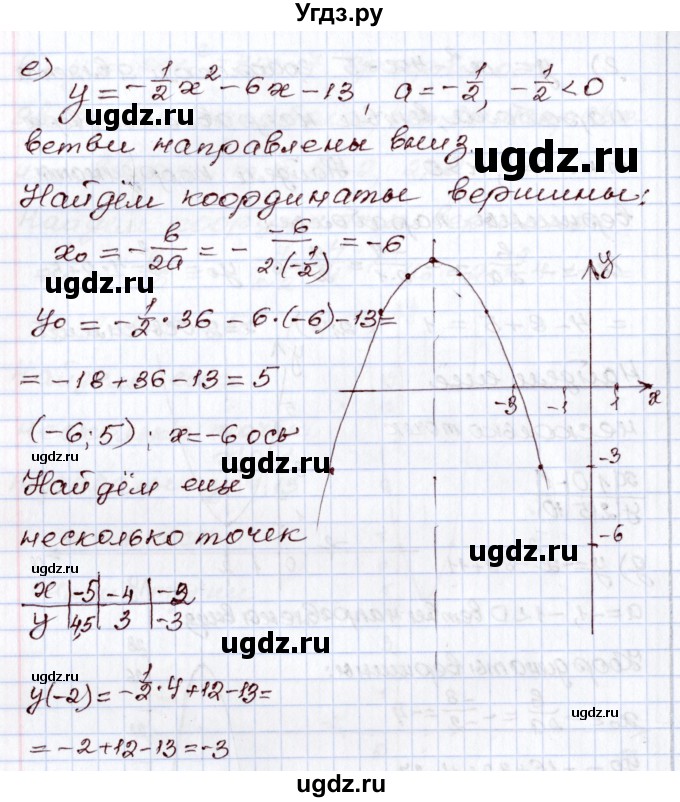 Угdz.ру
е)
y = -1/2 x² - 6x - 13, a = -1/2, -1/2 < 0
ugdz.ru
ветви направлены вниз.
Найдём координаты вершины:
x₀ = -b/2a = - -6/2·(-1/2) = -6
ugdz.ru
y
y₀ = -1/2 · 36 - 6·(-6) - 13 =
ugdz.ru
= -18 + 36 - 13 = 5
-3 -1 1 x
(-6; 5); x = -6 ось
ugdz.ru
-3
Найдём еще
несколько точек
ugdz.ru
-6
ugdz.ru
x | -5 | -4 | -2
y | 4,5 | 3 | -3
ugdz.ru
ugdz.ru
y(-2) = -1/2 · 4 + 12 - 13 =
ugdz.ru
= -2 + 12 - 13 = -3
ugdz.ru
ugdz.ru